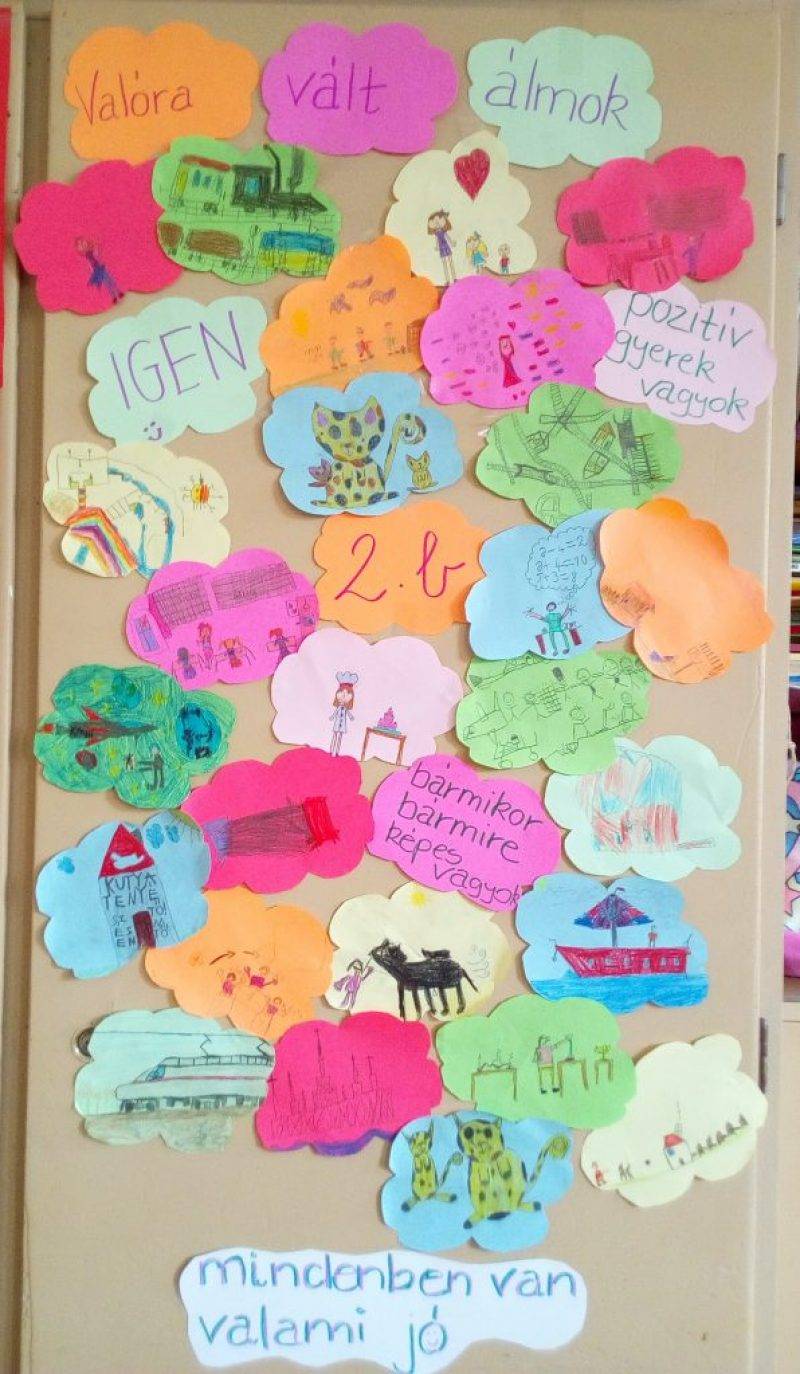 Valóra
vált
álmok
IGEN
pozitív
gyerek
vagyok
2. b
bármikor
bármire
képes
vagyok
KUTYA
TENYÉ
mindenben van
valami jó